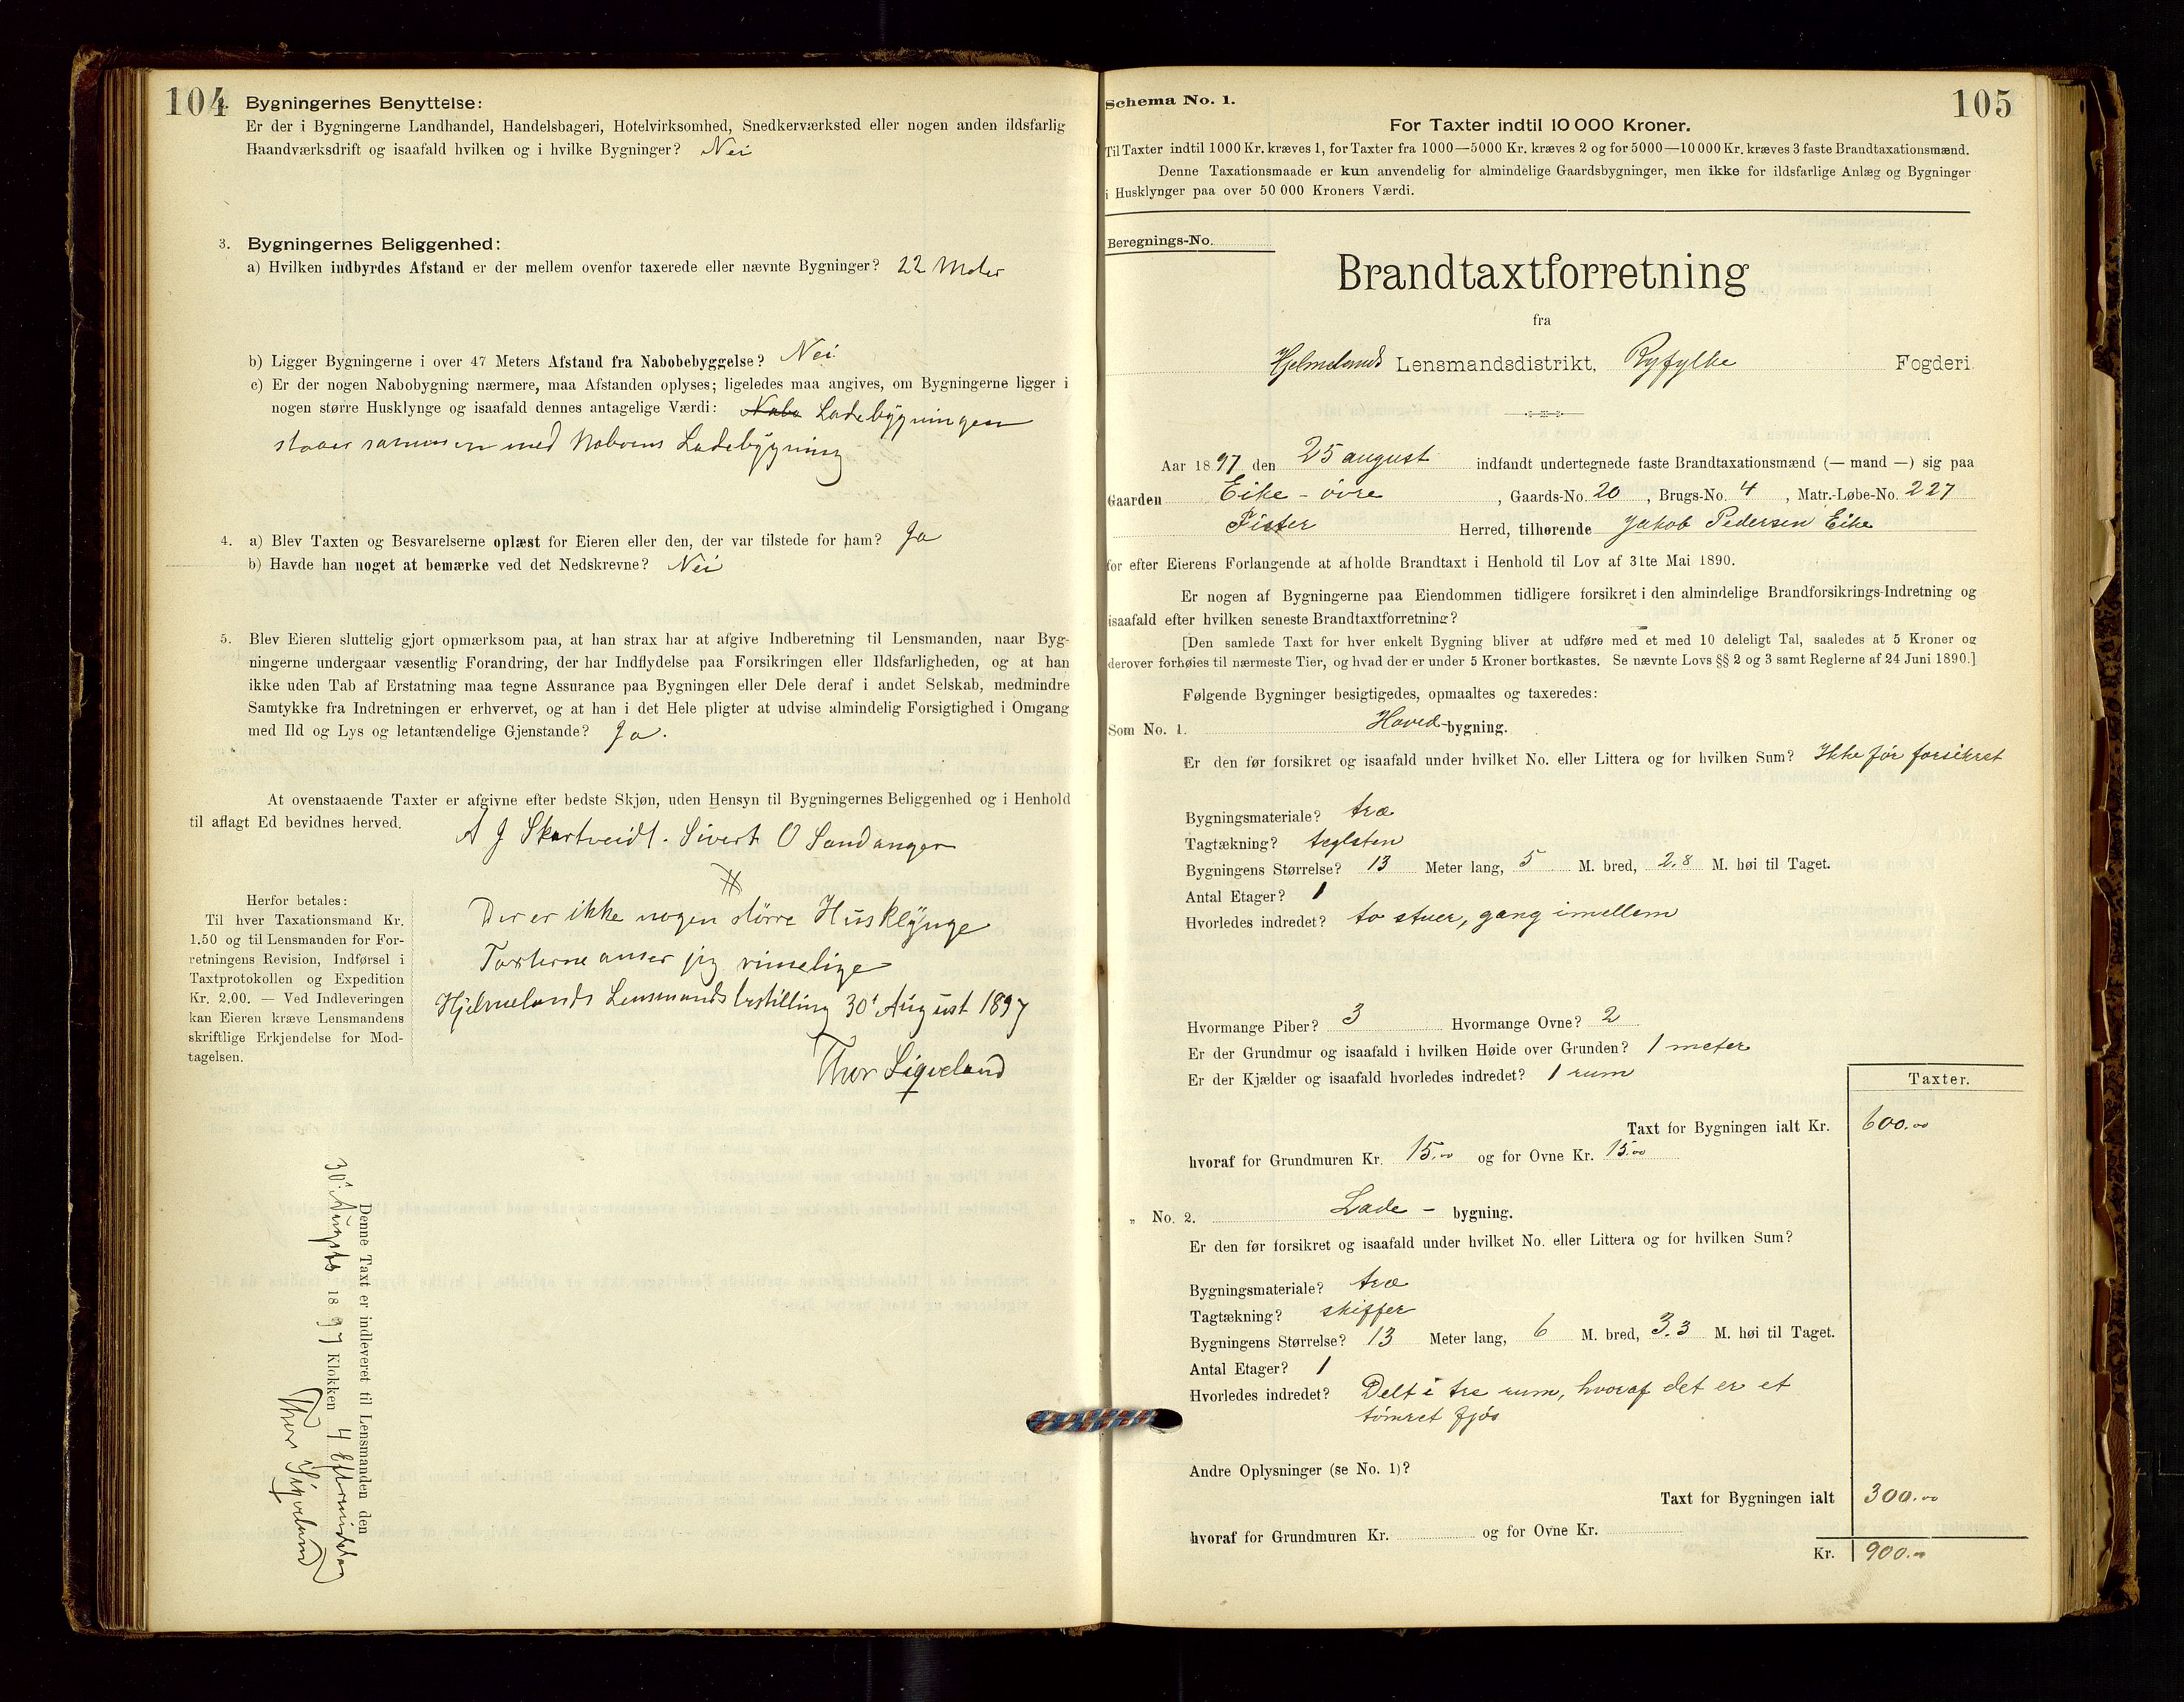 104
2. Bygningernes Benyttelse:
Er der i Bygningerne Landhandel, Handelsbageri, Hotelvirksomhed, Snedkerværksted eller nogen anden ildsfarlig
Haandværksdrift og isaafald hvilken og i hvilke Bygninger? Nei
3. Bygningernes Beliggenhed:
a) Hvilken indbyrdes Afstand er der mellem ovenfor taxerede eller nævnte Bygninger? 22 Meter
b) Ligger Bygningerne i over 47 Meters Afstand fra Nabobebyggelse? Nei
c) Er der nogen Nabobygning nærmere, maa Afstanden oplyses; ligeledes maa angives, om Bygningerne ligger i
nogen større Husklynge og isaafald dennes antagelige Værdi: Nabo Ladebygningen
staaer sammen med Naboens Ladebygning
4. a) Blev Taxten og Besvarelserne oplæst for Eieren eller den, der var tilstede for ham? Ja
b) Havde han noget at bemærke ved det Nedskrevne? Nei
5. Blev Eieren sluttelig gjort opmærksom paa, at han strax har at afgive Indberetning til Lensmanden, naar Byg-
ningerne undergaar væsentlig Forandring, der har Indflydelse paa Forsikringen eller Ildsfarligheden, og at han
ikke uden Tab af Erstatning maa tegne Assurance paa Bygningen eller Dele deraf i andet Selskab, medmindre
Samtykke fra Indretningen er erhvervet, og at han i det Hele pligter at udvise almindelig Forsigtighed i Omgang
med Ild og Lys og letantændelige Gjenstande? Ja.
At ovenstaaende Taxter er afgivne efter bedste Skjøn, uden Hensyn til Bygningernes Beliggenhed og i Henhold
til aflagt Ed bevidnes herved. A J Skartveidt. Sivert O Sandanger
Herfor betales:
Til hver Taxationsmand Kr.
1.50 og til Lensmanden for For-
retningens Revision, Indførsel i
Taxtprotokollen og Expedition
Kr. 2.00. — Ved Indleveringen
kan Eieren kræve Lensmandens
skriftlige Erkjendelse for Mod-
tagelsen.
Der er ikke nogen större Husklynge
Taxterne anser jeg rimelige
Hjelmelands Lensmandsbestilling 30' August 1897
Thor Sigveland
Denne Taxt er indleveret til Lensmanden den
30' Augusts 1897 Klokken 4 Eftermiddag
Thor Sigveland
Schema No. 1.
105
For Taxter indtil 10 000 Kroner.
Til Taxter indtil 1000 Kr. kræves 1, for Taxter fra 1000—5000 Kr. kræves 2 og for 5000—10 000 Kr. kræves 3 faste Brandtaxationsmænd.
Denne Taxationsmaade er kun anvendelig for almindelige Gaardsbygninger, men ikke for ildsfarlige Anlæg og Bygninger
i Husklynger paa over 50 000 Kroners Værdi.
Beregnings-No.
Brandtaxtforretning
fra
Hjelmelands Lensmandsdistrikt, Ryfylke Fogderi
Aar 1897 den 25 august indfandt undertegnede faste Brandtaxationsmænd (— mand —) sig paa
Gaarden Eike - övre, Gaards-No. 20, Brugs-No. 4, Matr.-Løbe-No. 227
Fister Herred, tilhørende Jakob Pedersen Eike
for efter Eierens Forlangende at afholde Brandtaxt i Henhold til Lov af 31te Mai 1890.
Er nogen af Bygningerne paa Eiendommen tidligere forsikret i den almindelige Brandforsikrings-Indretning og
isaafald efter hvilken seneste Brandtaxtforretning? —
[Den samlede Taxt for hver enkelt Bygning bliver at udføre med et med 10 deleligt Tal, saaledes at 5 Kroner og
derover forhøies til nærmeste Tier, og hvad der er under 5 Kroner bortkastes. Se nævnte Lovs §§ 2 og 3 samt Reglerne af 24 Juni 1890.]
Følgende Bygninger besigtigedes, opmaaltes og taxeredes:
Som No. 1. Hoved-bygning.
Er den før forsikret og isaafald under hvilket No. eller Littera og for hvilken Sum? Ikke för forsikret
Bygningsmateriale? træ
Tagtækning? teglsten
Bygningens Størrelse? 13 Meter lang, 5 M. bred, 2.8 M. høi til Taget.
Antal Etager? 1
Hvorledes indredet? to stuer, gang imellem
Hvormange Piber? 3 Hvormange Ovne? 2
Er der Grundmur og isaafald i hvilken Høide over Grunden? 1 meter
Er der Kjælder og isaafald hvorledes indredet? 1 rum
Taxter.
Taxt for Bygningen ialt Kr. 600.00
hvoraf for Grundmuren Kr. 15.00 og for Ovne Kr. 15.00
„ No. 2. Lade - bygning.
Er den før forsikret og isaafald under hvilket No. eller Littera og for hvilken Sum?
Bygningsmateriale? træ
Tagtækning? skiffer
Bygningens Størrelse? 13 Meter lang, 6 M. bred, 3.3 M. høi til Taget.
Antal Etager? 1
Hvorledes indredet? Delt i tre rum, hvoraf det er et
tömret fjös
Andre Oplysninger (se No. 1)?
Taxt for Bygningen ialt 300.00
hvoraf for Grundmuren Kr. og for Ovne Kr.
Kr. 900.00